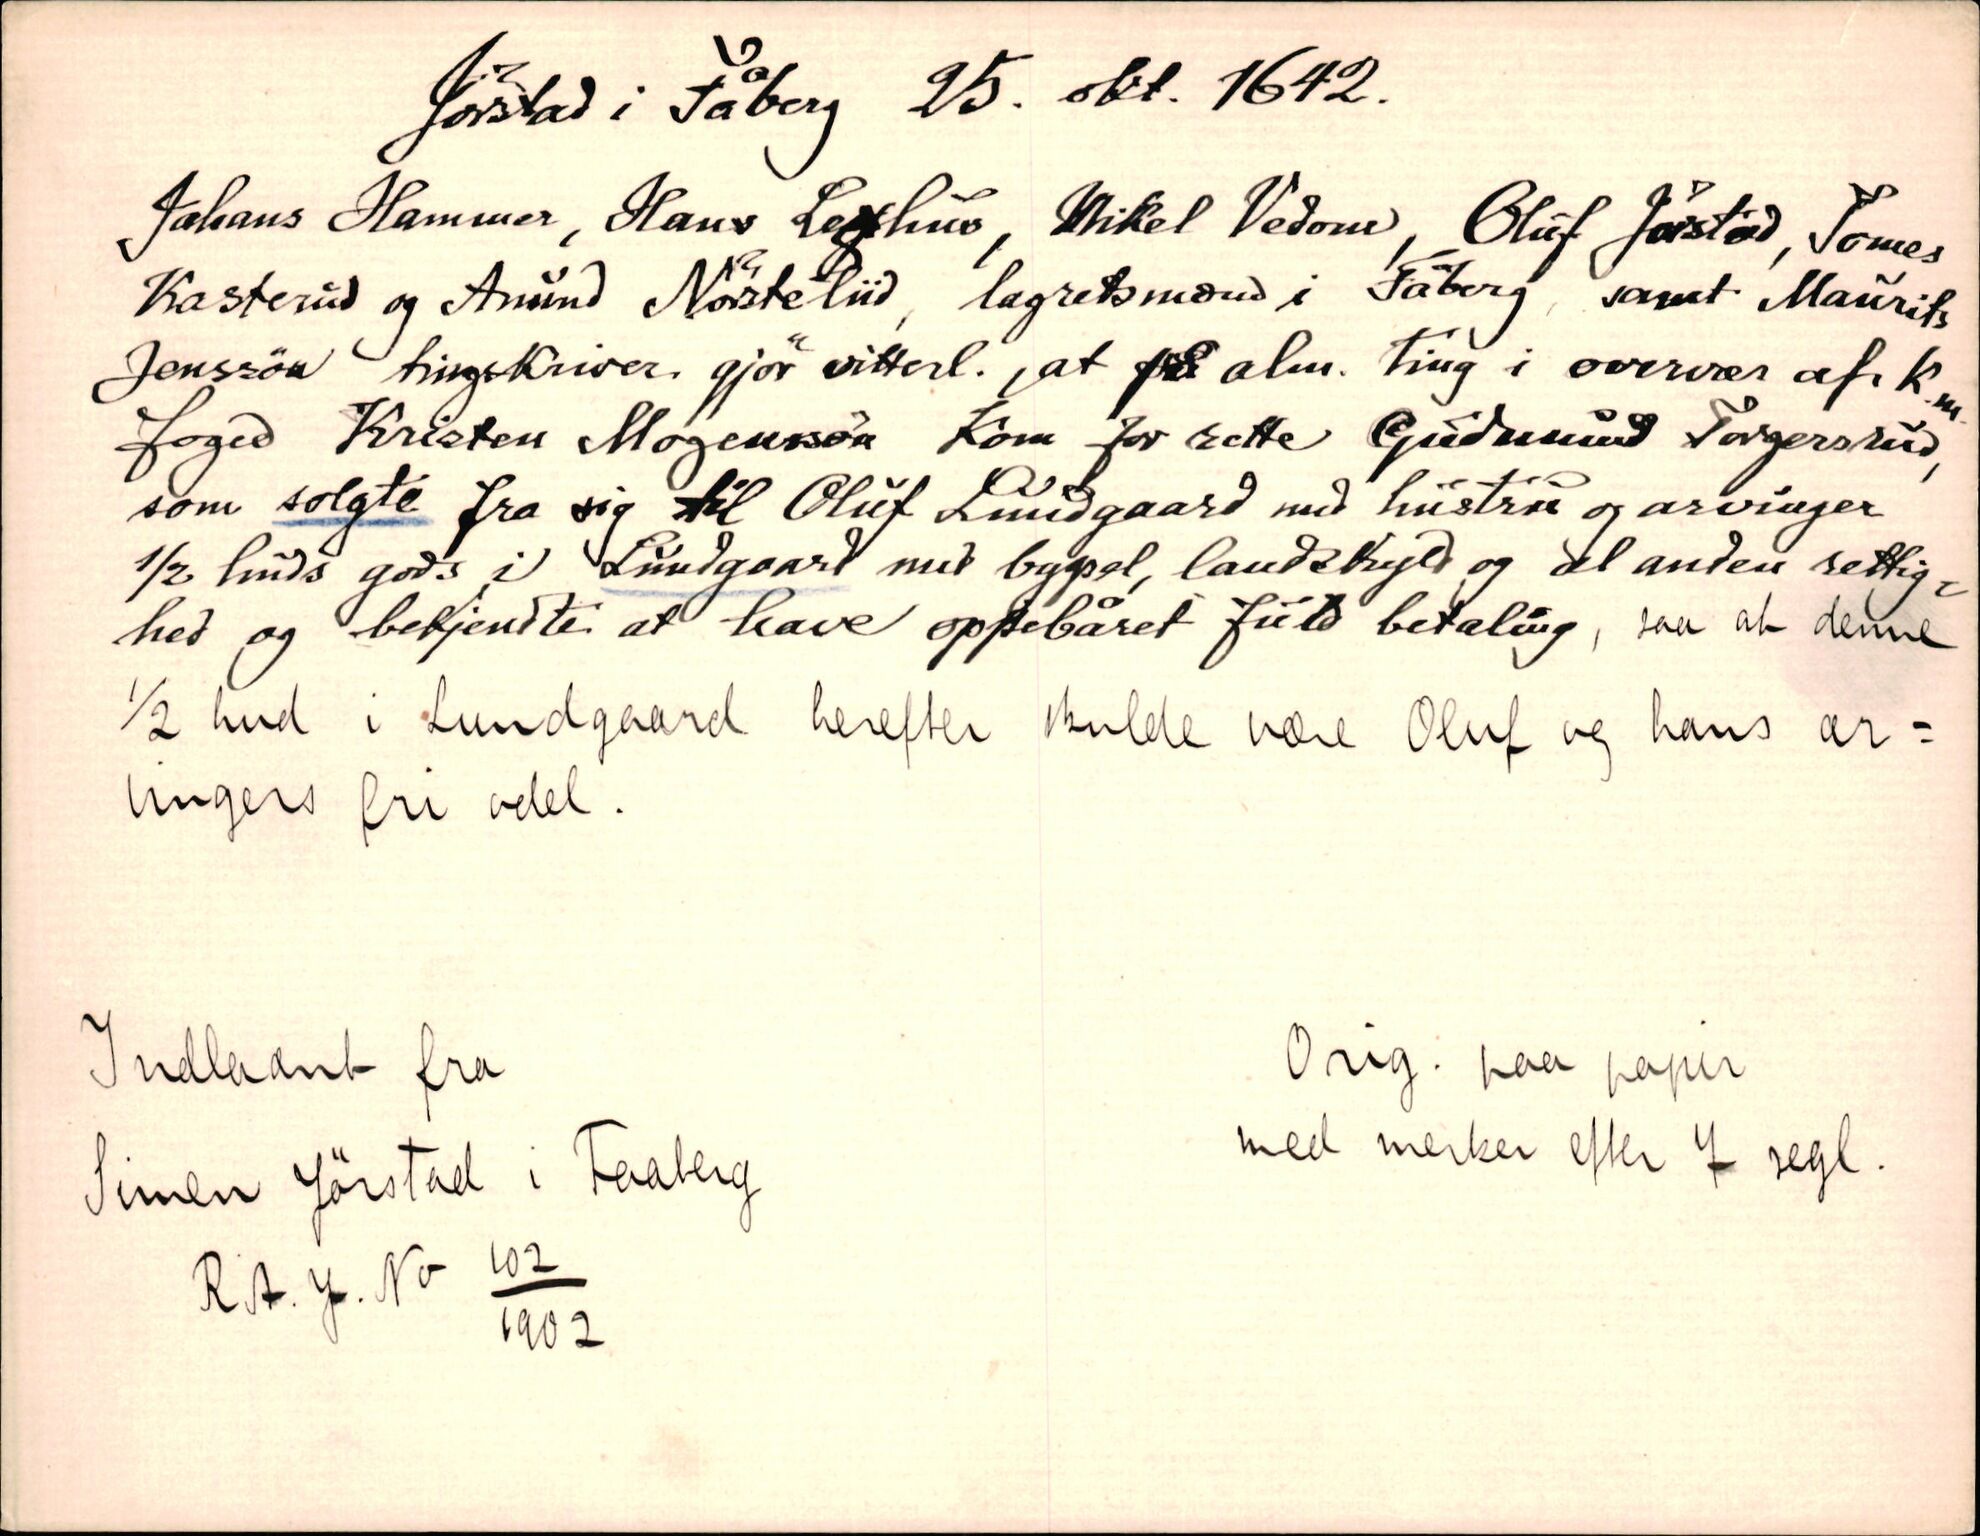 Jörstad i Fåberg 25. okt. 1642.
Johans Hammer, Hans Legshus, Mikel Vedom, Oluf Jörstad, Tomes
Kasterud og Anund Nörsteliid, lagretsmænd i Fåberg, samt Maurits
Jenssön tingskriver gjör vitterl., at på alm. ting i overvær af k. m.
foged Kristen Mogenssön kom for rette Gudmund Torgersrud,
som solgte fra sig til Oluf Lundgaard med hustru og arvinger
1/2 huds gods i Lundgaard med bygsel, landskyld og al anden rettig-
hed og bekjendte at have oppebåret fuld betaling, saa at denne
1/2 hud i Lundgaard herefter skulde være Oluf og hans ar=
vingers fri odel.
Indlaant fra
Simen Jörstad i Faaberg
R.A. J. No 102/1902
Orig. paa papir
med merker efter 7 segl.